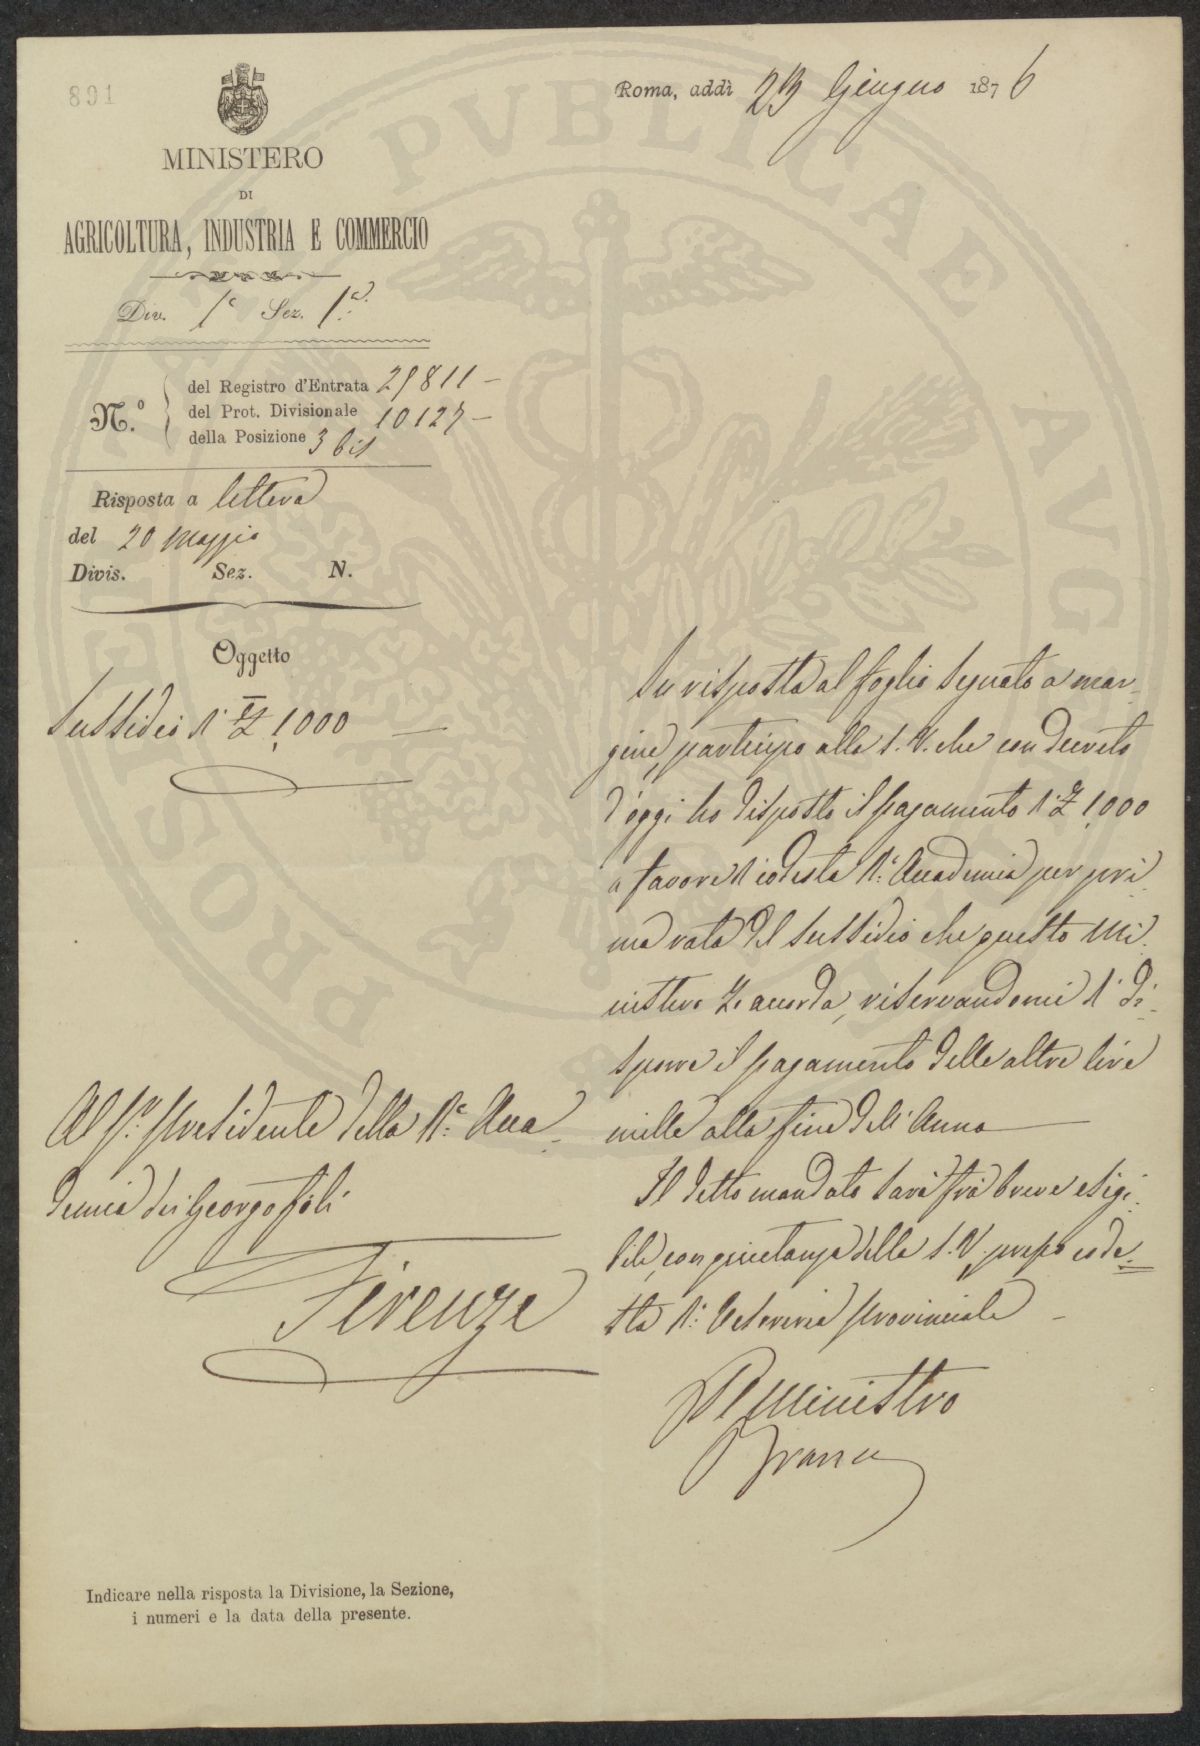 891
MINISTERO
DI
AGRICOLTURA, INDUSTRIA E COMMERCIO
Div. 1ª Sez. 1ª
N.º
del Registro d'Entrata 29811 –
del Prot. Divisionale 10127 –
della Posizione 3 bis
Risposta a lettera
del 20 Maggio
Divis. Sez. N.
Oggetto
Sussidio di £ 1,000
Al Sr. Presidente della Rª Acca
demia dei Georgofili
Firenze
Indicare nella risposta la Divisione, la Sezione,
i numeri e la data della presente.
Roma, addì 23 Giugno 1876
In risposta al foglio segnato a mar-
gine, partecipo alla S. V. che con decreto
d'oggi ho disposto il pagamento di £ 1,000
a favore di codesta R. Accademia per pri
ma rata del sussidio che questo Mi
nistero le accorda, riservandomi di di-
sporre il pagamento delle altre lire
mille alla fine dell'Anno
Il detto mandato sarà frà breve esigi
bile, con quietanza della S. V. presso code
sta R. Tesoreria Provinciale
Pel Ministro
PROSPERITATI PVBLICAE AVGENDAE